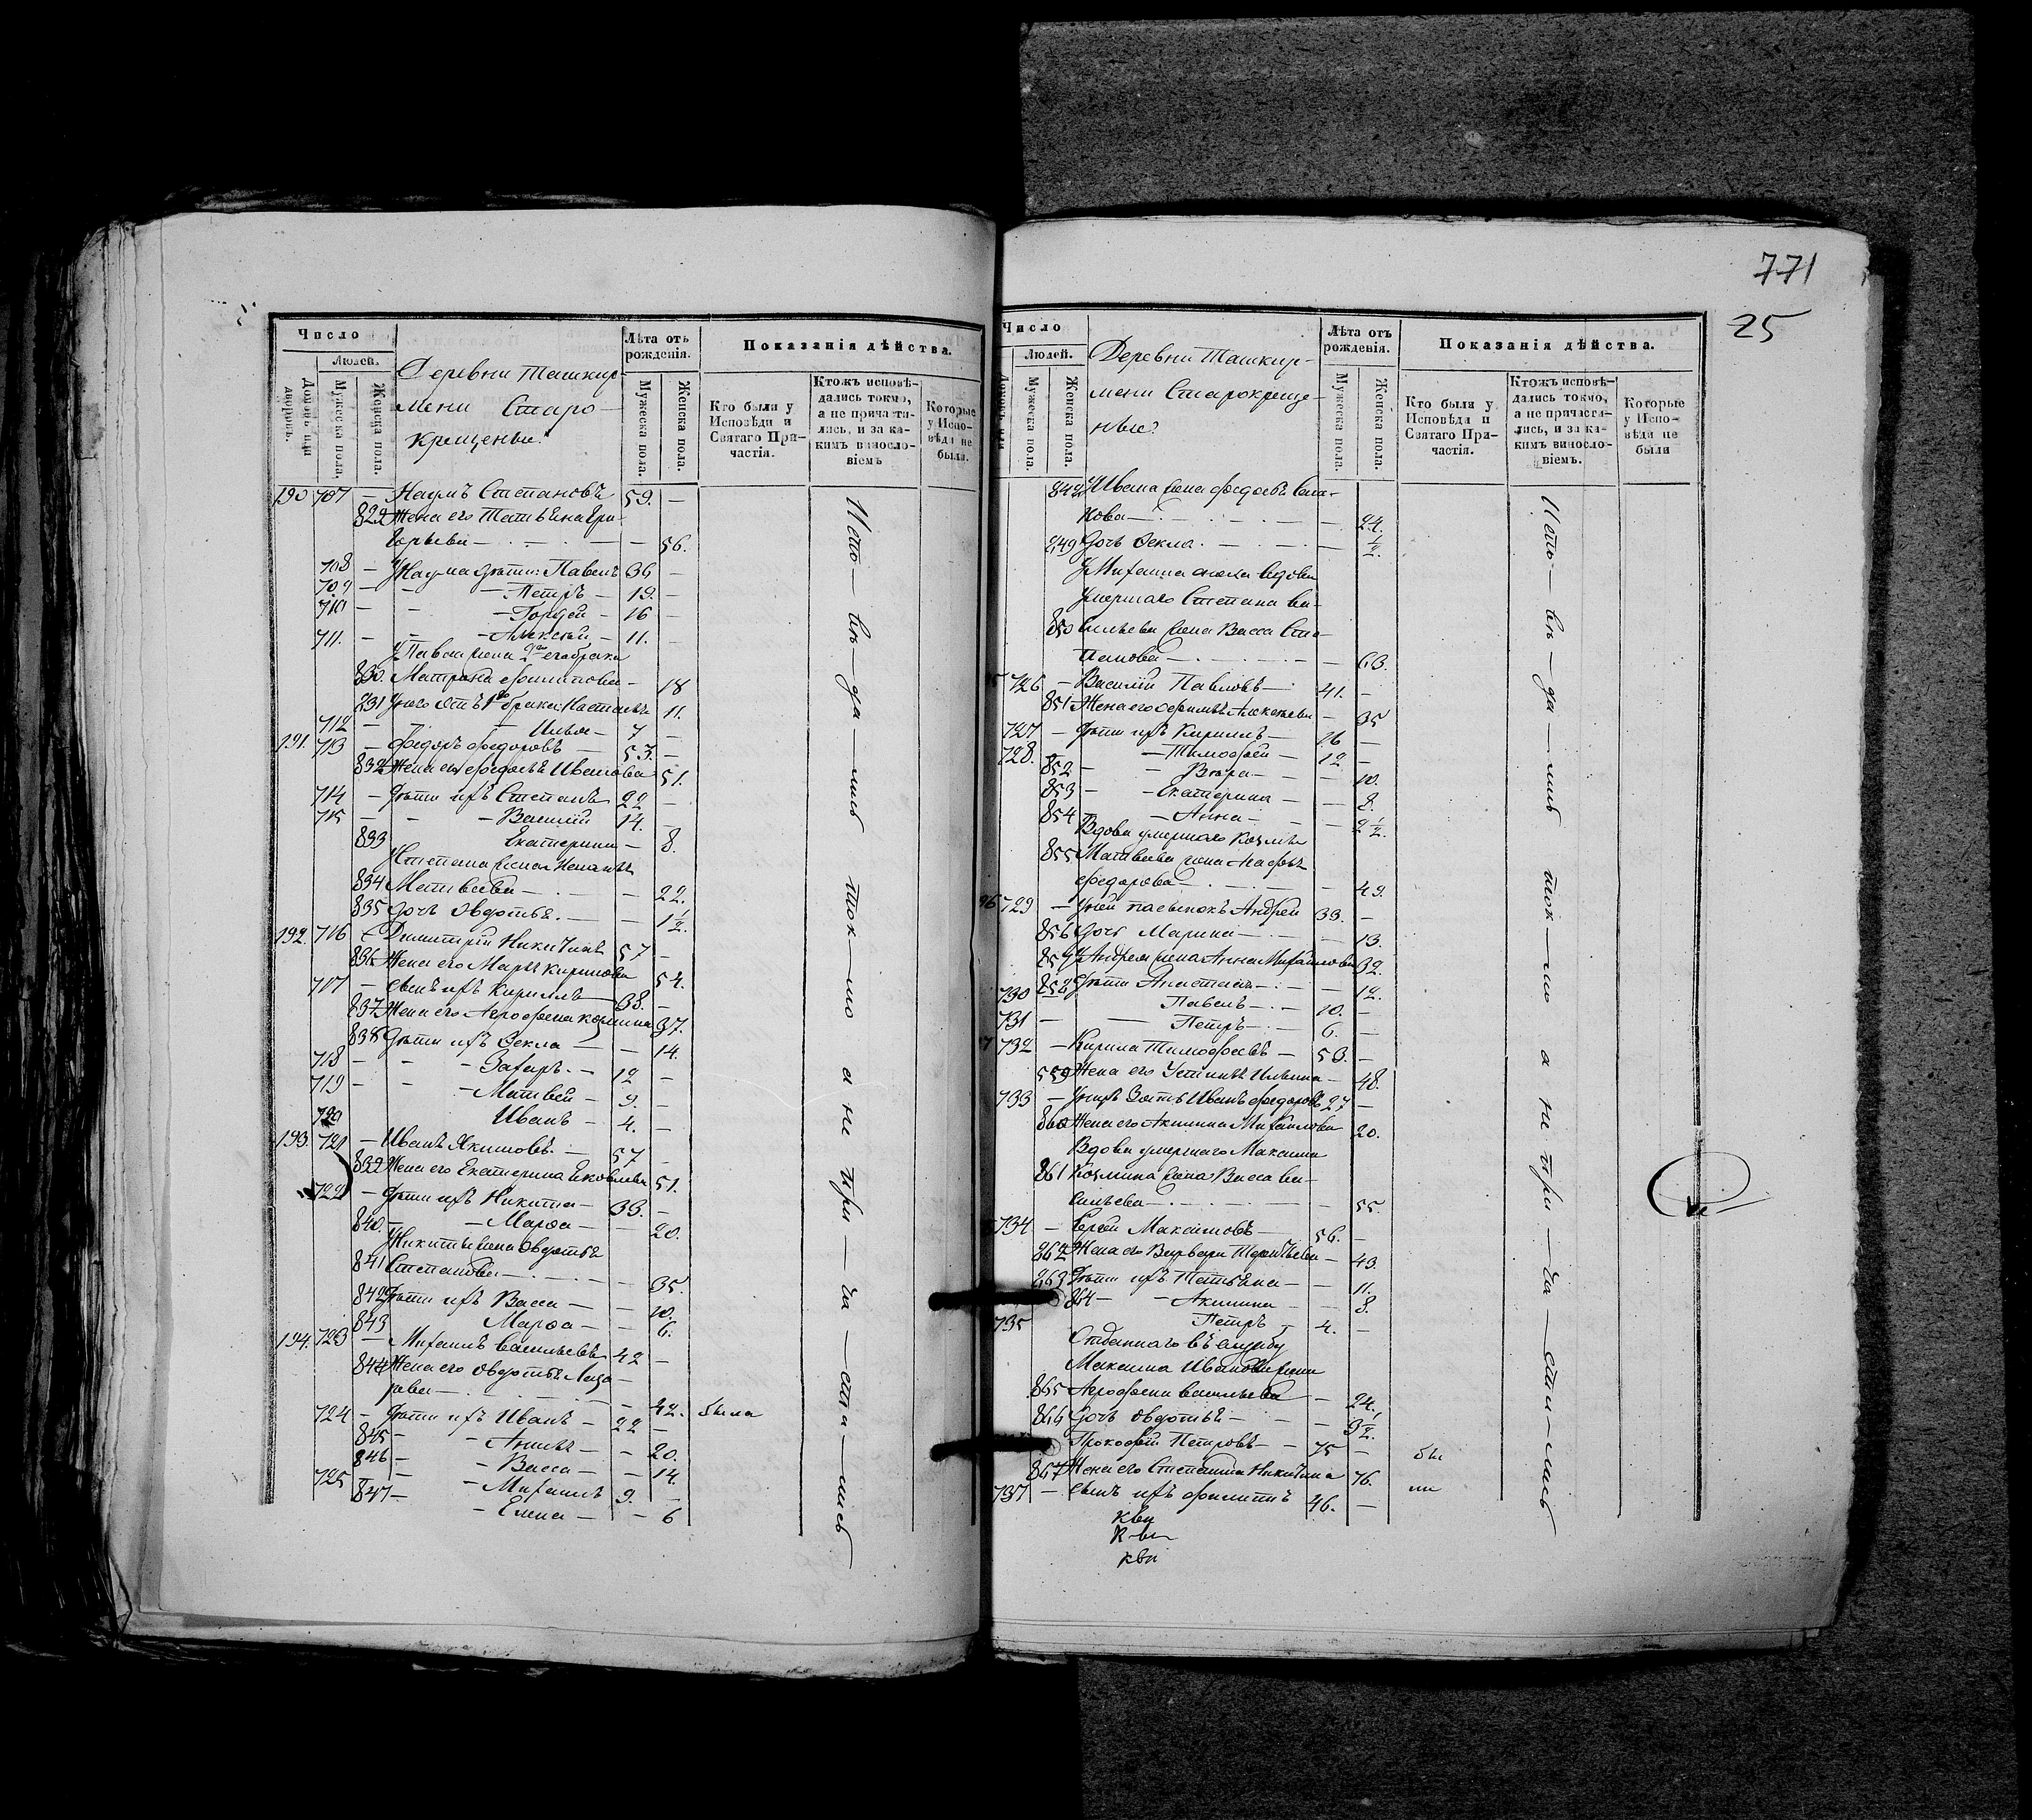 771
25
Число
Людей.
Домовъ или дворовъ.
Мужеска пола.
Женска пола.
Деревни Ташкир-
мени Старо-
крещеные.
Лѣта отъ рожденія.
Мужеска пола.
Женска пола.
Показанія дѣйства.
Кто были у Исповѣди и Святаго При-частія.
Ктожъ исповѣ-дались токмо, а не причасти-лись, и за ка-кимъ винословіемъ
Которые у Испо-вѣди не были.
190 707 – Наумъ Степановъ 59. –
829 Жена его Татьяна Гри-
горьева – – 56.
708 – У Наума дѣти: Павелъ 36 –
709 – – – Петръ – 19. –
710 – – – Гордей – 16 –
711. – – – Алексѣй – 11. –
У Павла жена 2го его брака
830. Матрона Филипова – 18
831 У него отъ 1го брака: Настасья 11.
712 – – – Илья – 7 –
191. 713 – Федоръ Федоровъ – 53. –
832 Жена его Федосья Иванова 51.
714 – Дѣти ихъ Степанъ 22 –
715 – – – Василій 14. –
833 Екатерина – 8.
У Степана жена
834 Матвеева – – 22.
835 Дочь Овдотья. – – 1½.
192. 716 – Димитрій Никитинъ 57 –
836 Жена его Марья Кирилова 54.
717 – Сынъ ихъ Кириллъ – 38. –
837 Жена его Агрофена Козмина 37.
838 Дѣти ихъ Фекла – – 14.
718 – – – Захаръ. – 12 –
719 – – – Матвей – 9. –
720 Иванъ – 4. –
193 721 – Иванъ Якимовъ. – 57 –
839 Жена его Екатерина Яковлева 51.
722 – Дѣти ихъ Никита – 33. –
840. – – Марфа – – 20.
У Никиты жена Овдотья
841 Степанова – – 35.
842 Дѣти ихъ Васса – – 10.
843 Марфа – – 6.
194. 723 – Михаилъ Васильевъ 42 –
844 Жена его Овдотья Лаза-
рева – – 42. была
724 – Дѣти ихъ Иванъ – 22 –
845 – – Анна – – 20.
846 – – Васса – – 14.
725 – – Михаилъ 9. –
847 – – Елена – – 6
Испо – вѣ – да – лись ток – мо а не при – ча – сти – лись
Число
Людей.
Мужеска пола.
Женска пола.
Деревни Ташкир-
мени Старокреще-
ные.
Лѣта отъ рожденія.
Мужеска пола.
Женска пола.
Показанія дѣйства.
Кто были у Исповѣди и Святаго При-частія.
Ктожъ исповѣ-дались токмо, а не причасти-лись, и за ка-кимъ винословіемъ.
Которые у Испо-вѣди не были
848 У Ивана жена Федосья
– 24.
849 Дочь Фекла. – – ½.
У Михаила сноха вдова
умершаго Степана Ва-
850 сильева жена Васса Сте-
панова – – 63.
726 – Василій Павловъ – 41. –
851 Жена его Офимья Алексеева – 35
727 – Дѣти ихъ Кириллъ – 16 –
728. – Тимофей – 12 –
852 – – Вѣра – – 10.
853 – – Екатерина – – 8.
854 – Анна – – 2½.
Вдова умершаго Козмы
855 Матвеева жена Агафья
Федорова – – 49.
96 729 – У ней пасынокъ Андрей 33. –
856 Дочь Марина – – 13.
857 У Андрея жена Анна Михайлова 32.
858 Дѣти Анастасья – – 12.
730 Павелъ – 10. –
731 – – Петръ – 6. –
7 732 – Кирила Тимофеевъ – 53. –
859 Жена его Устинья Ильина – 48.
733 – У нихъ зять Иванъ Федоровъ 27 –
860 Жена его Акилина Михайлова 20.
Вдова умершаго Максима
861 Козмина жена Васса Ва-
сильева – – 55.
734 – Сергей Максимовъ – 56. –
862 Жена его Варвара Терентьева – 43.
863 Дѣти ихъ Татьяна – – 11.
864 – – Акилина – – 8.
735 Петръ – 4. –
Отданнаго въ службу
Максима Иванова жена
865 Агрофена Васильева – 24.
866 Дочь Овдотья – – 3½.
Прокофій Петровъ – 75 – бы
867 Жена его Степанида Никитина 76. ли
737 – Сынъ ихъ Филиппъ 46. –
Испо – вѣ – да – лись ток – мо а не при – ча – сти – лись